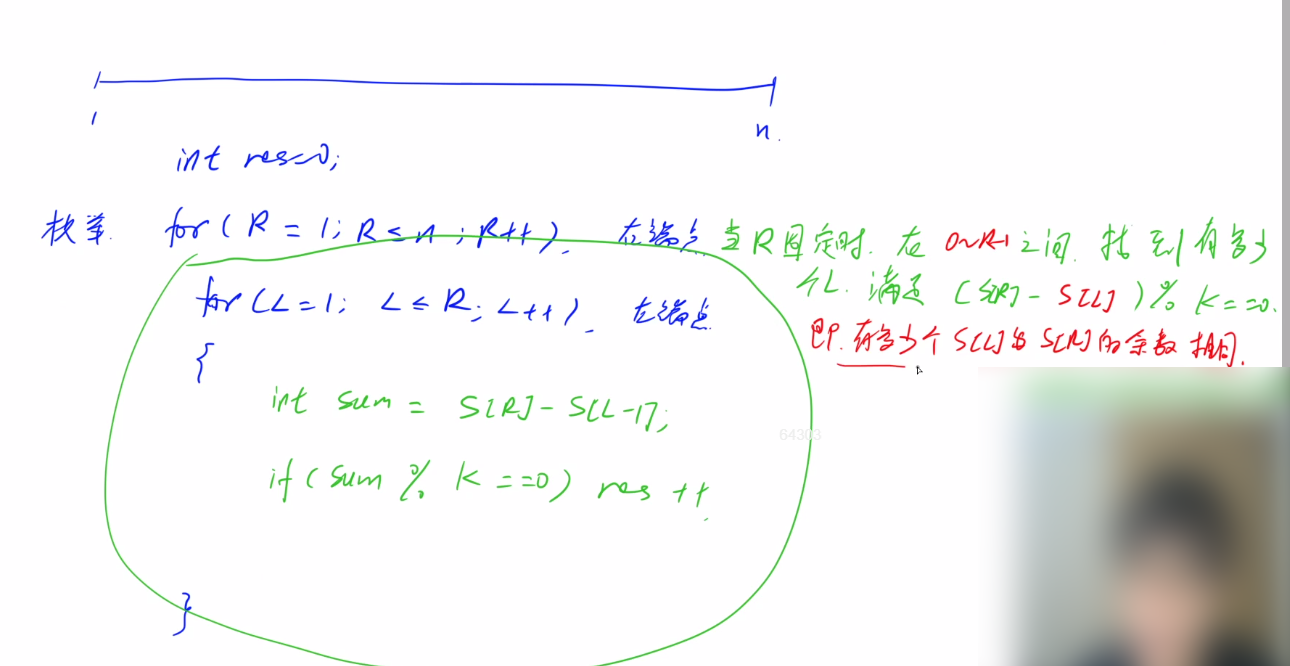 1 n.
int res=0;
枚举 for(R = 1; R ≤ n; R++) 右端点 当R固定时. 在 0~R-1 之间. 找到有多少
个L. 满足 (S[R] - S[L]) % K == 0.
for(L=1; L ≤ R; L++) 左端点
即. 有多少个 S[L]与 S[R]的余数相同.
{
int sum = S[R] - S[L-1];
64303
if(sum % K ==0) res ++
}